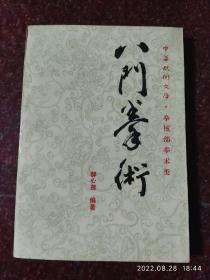 中华武术文库·拳械部拳术类
八門拳術
郝心莲 编著
2022.08.28 18:44